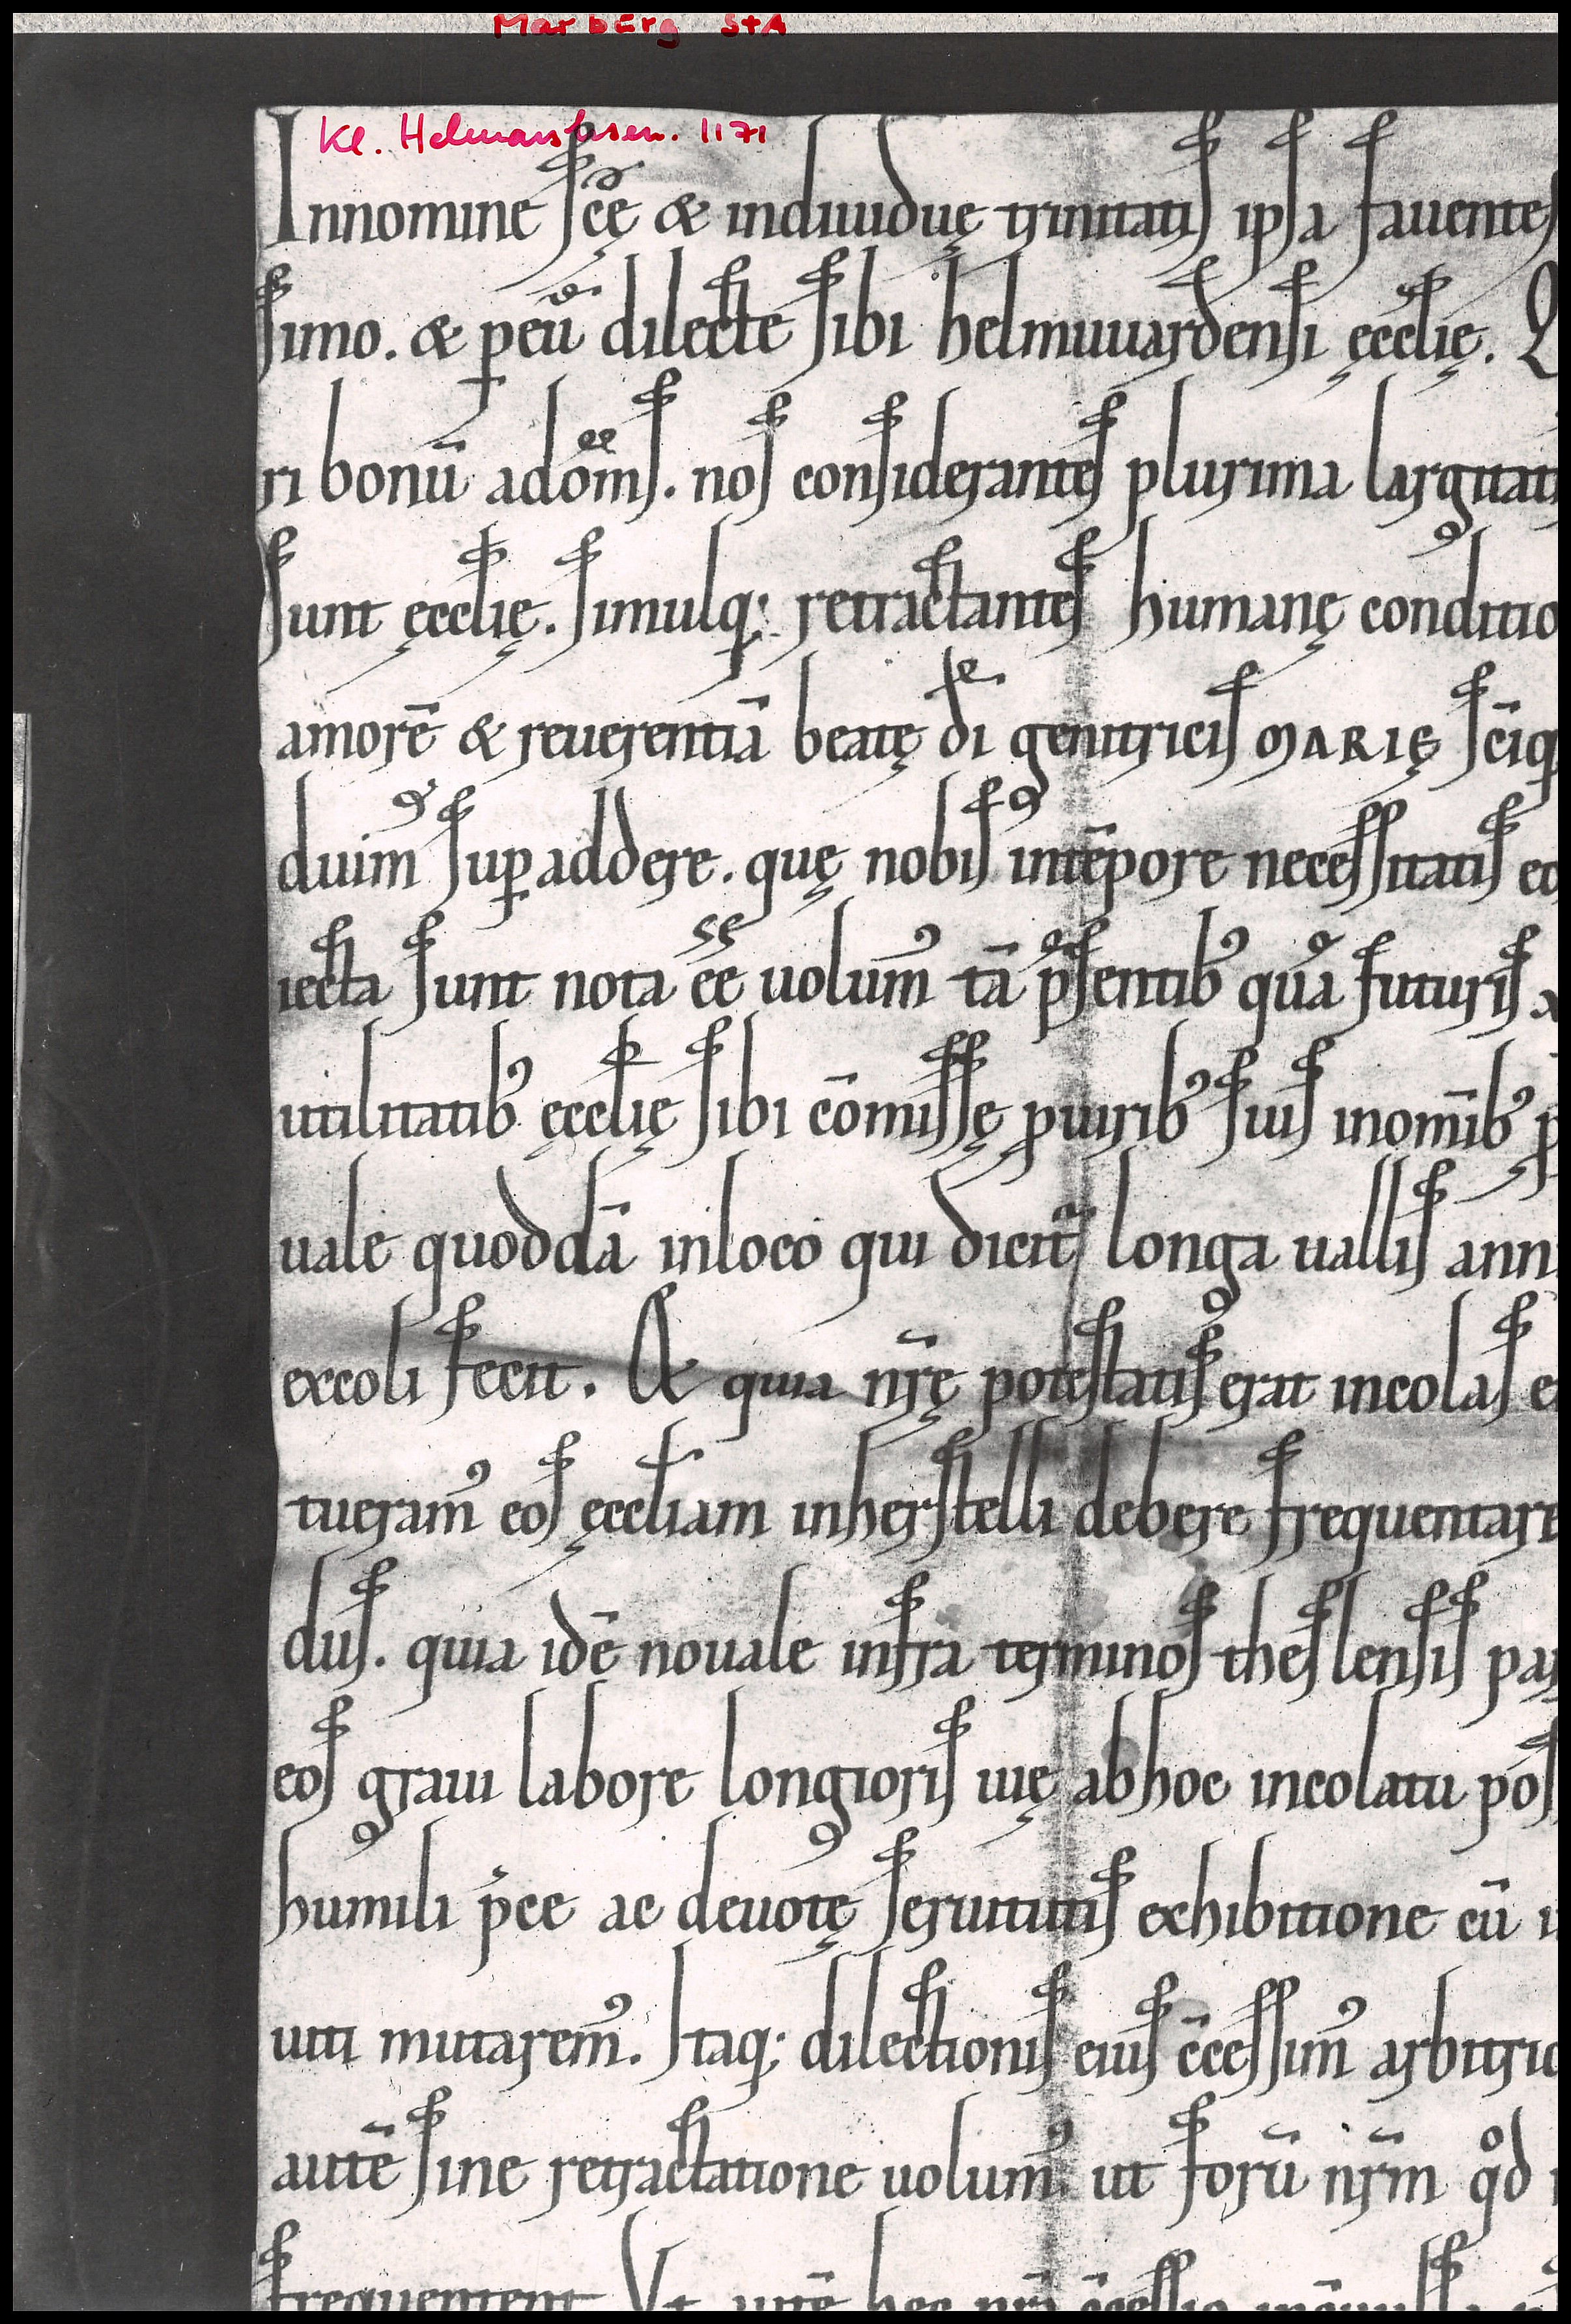 Marburg StA
Kl. Helmarshusen. 1171
Innomine sc̄ę & indiuiduę trinitatis ipsa fauente
simo. & p̱ eū dilecte sibi helmuuardensi ęcclię.
ri bonū ad om̄s. nos considerantes plurima largitati
sunt ęcclię. simulq; retractantes humanę conditio
amorē & reuerentiā beatę dī genitricis MARIĘ sc̄iq
duximꝰ sup̱addere. quę nobis intēpore necessitatis
iecta sunt nota ēē uolumꝰ tā p̄sentibꝰ quā futuris.
utilitatibꝰ ęcclię sibi cōmissę ꝓuiribꝰ suis inomībꝰ
uale quoddā inloco qui dicit᷑ longa uallis ann
excoli fecit. & quia nr̄ę potestatis erat incolas
tueramꝰ eos ęccliam inherstelli debere frequentare
dus. quia idē nouale infra terminos theslensis
eos graui labore longioris uię abhoc incolatu
humili p̄ce ac deuotę seruitutis exhibitione cū
uti mutaremꝰ. Itaq; dilectionis eius c̄cessimꝰ arbitrio
autē sine retractatione uolumꝰ ut forū nr̄m qd
frequentent